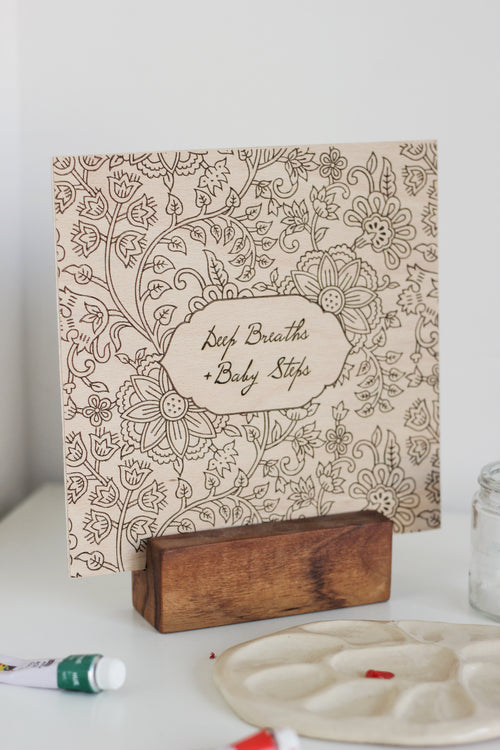 Deep Breaths
+ Baby Steps